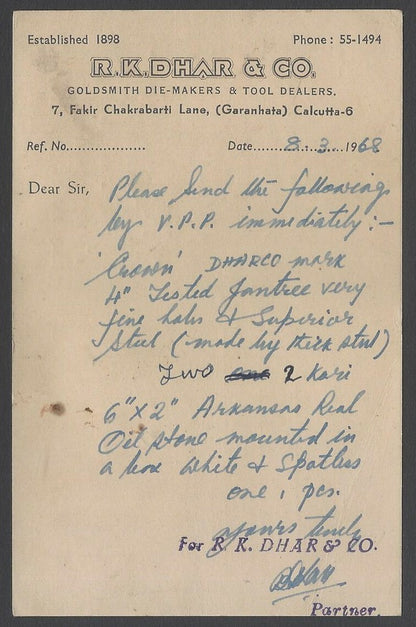 Established 1898
Phone : 55-1494
R.K.DHAR & CO.
GOLDSMITH DIE-MAKERS & TOOL DEALERS.
7, Fakir Chakrabarti Lane, (Garanhata) Calcutta-6
Ref. No...................
Date........8.3....1968
Dear Sir, Please send the following
by V.P.P. immediately :-
'Crown' DHARCO mark
4" Tested Jantree very
fine hols & Superior
Steel (made by thick steel)
Two 2 Kori
6"X2" Arkansas Real
Oil stone mounted in
a box white & Spotless
one 1 pcs.
yours truly
For R. K. DHAR & CO.
Partner.